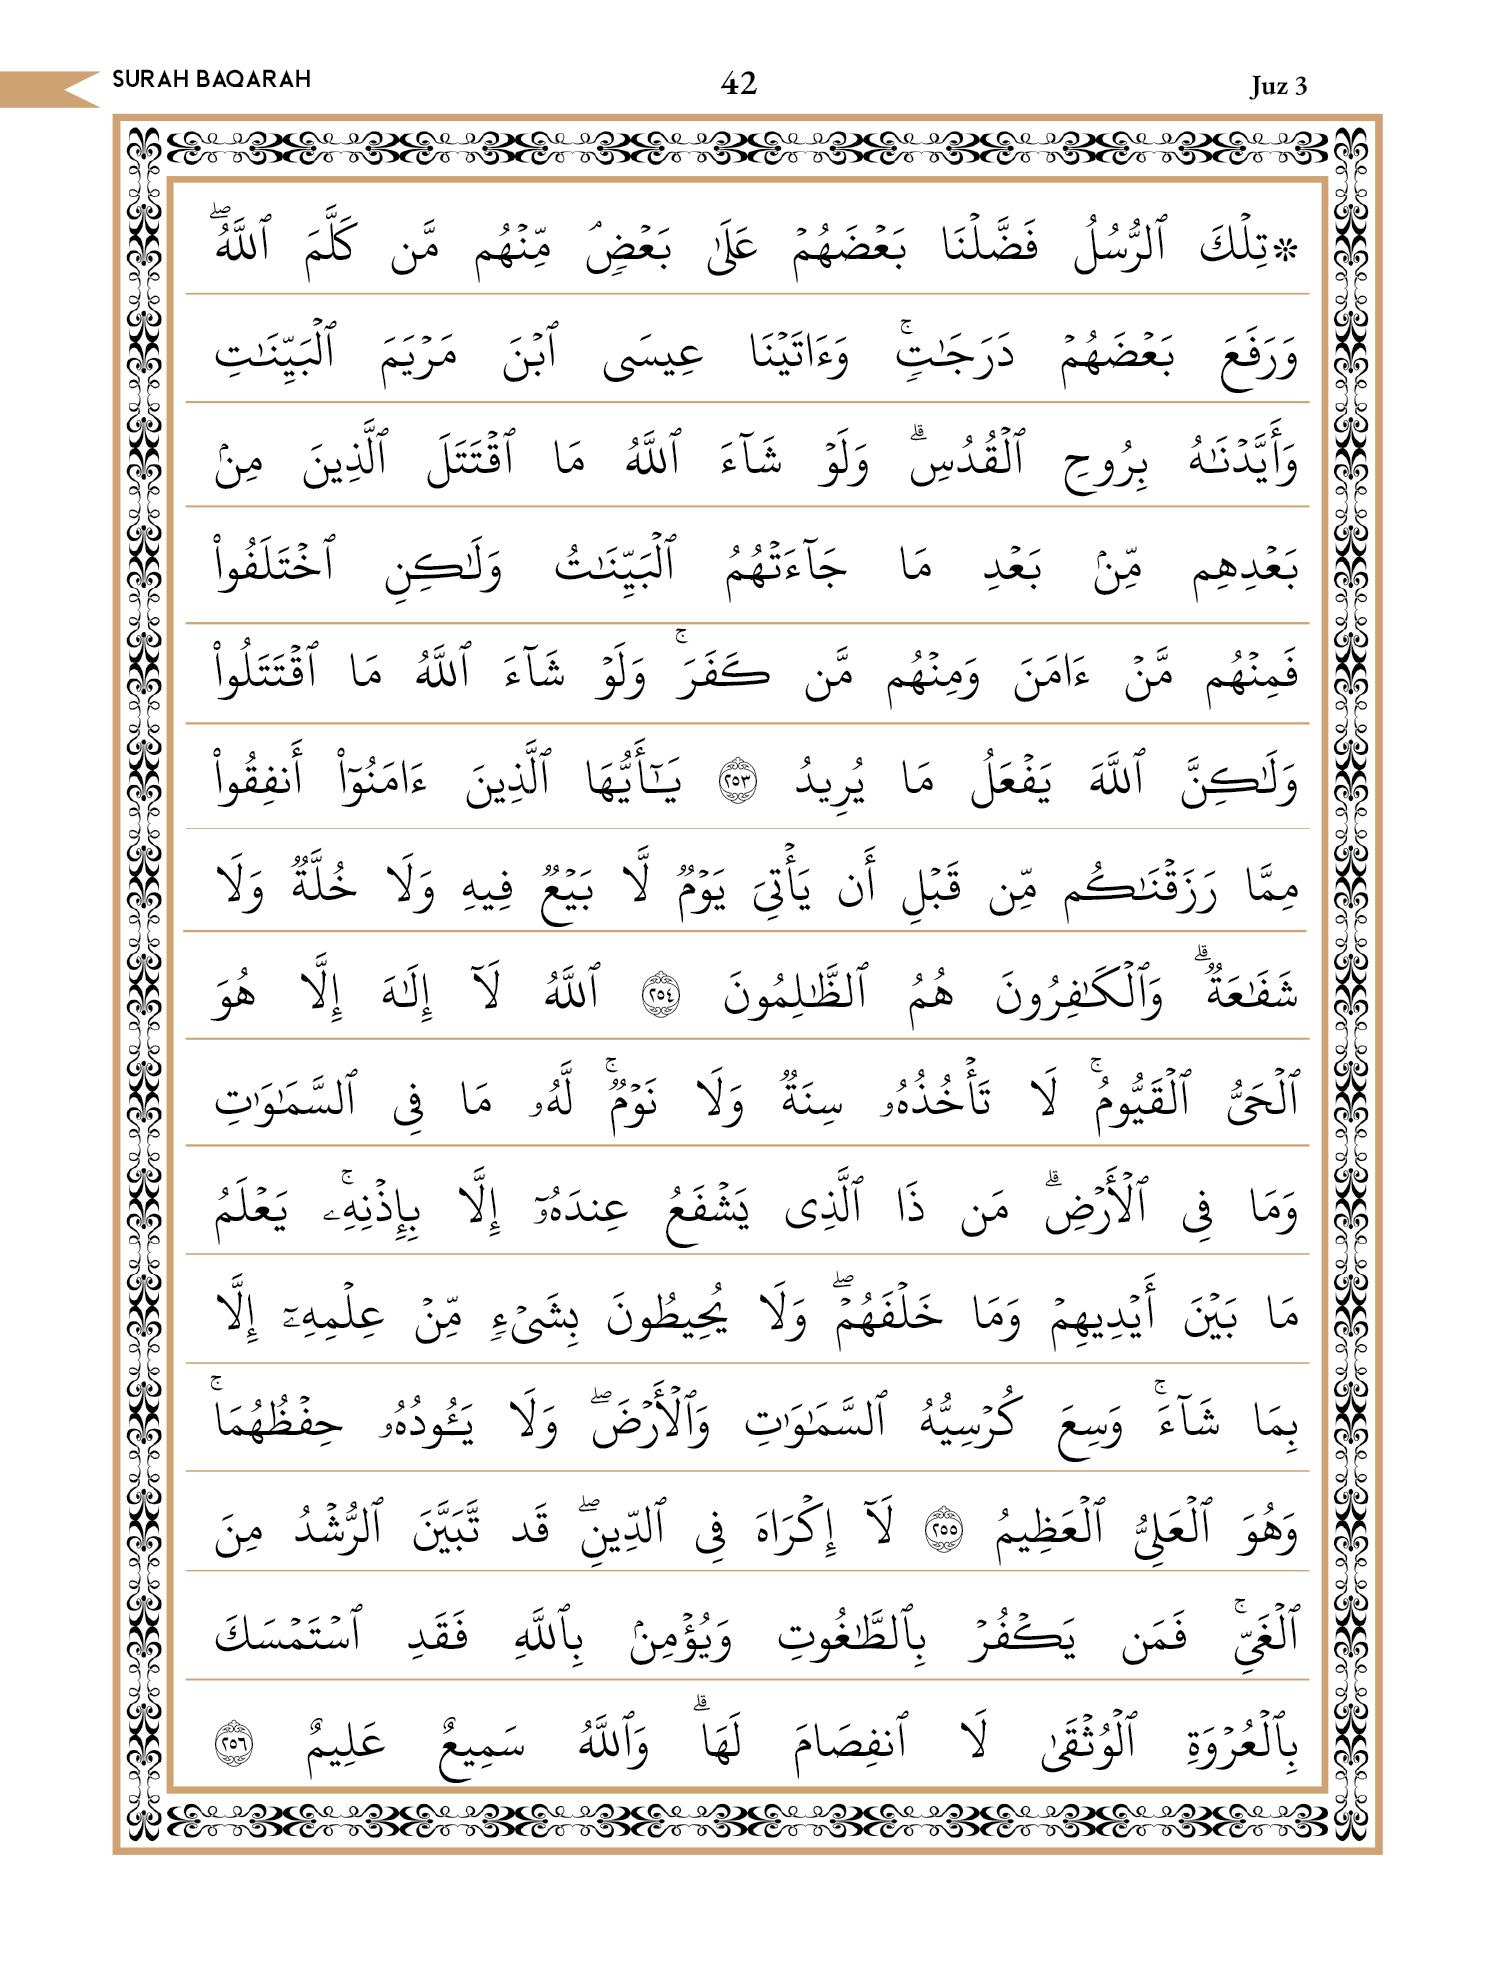 SURAH BAQARAH 42 Juz 3
۞ تِلۡكَ ٱلرُّسُلُ فَضَّلۡنَا بَعۡضَهُمۡ عَلَىٰ بَعۡضٖۘ مِّنۡهُم مَّن كَلَّمَ ٱللَّهُۖ
وَرَفَعَ بَعۡضَهُمۡ دَرَجَٰتٖۚ وَءَاتَيۡنَا عِيسَى ٱبۡنَ مَرۡيَمَ ٱلۡبَيِّنَٰتِ
وَأَيَّدۡنَٰهُ بِرُوحِ ٱلۡقُدُسِۗ وَلَوۡ شَآءَ ٱللَّهُ مَا ٱقۡتَتَلَ ٱلَّذِينَ مِنۢ
بَعۡدِهِم مِّنۢ بَعۡدِ مَا جَآءَتۡهُمُ ٱلۡبَيِّنَٰتُ وَلَٰكِنِ ٱخۡتَلَفُواْ
فَمِنۡهُم مَّنۡ ءَامَنَ وَمِنۡهُم مَّن كَفَرَۚ وَلَوۡ شَآءَ ٱللَّهُ مَا ٱقۡتَتَلُواْ
وَلَٰكِنَّ ٱللَّهَ يَفۡعَلُ مَا يُرِيدُ ٢٥٣ يَٰٓأَيُّهَا ٱلَّذِينَ ءَامَنُوٓاْ أَنفِقُواْ
مِمَّا رَزَقۡنَٰكُم مِّن قَبۡلِ أَن يَأۡتِيَ يَوۡمٞ لَّا بَيۡعٞ فِيهِ وَلَا خُلَّةٞ وَلَا
شَفَٰعَةٞۗ وَٱلۡكَٰفِرُونَ هُمُ ٱلظَّٰلِمُونَ ٢٥٤ ٱللَّهُ لَآ إِلَٰهَ إِلَّا هُوَ
ٱلۡحَيُّ ٱلۡقَيُّومُۚ لَا تَأۡخُذُهُۥ سِنَةٞ وَلَا نَوۡمٞۚ لَّهُۥ مَا فِي ٱلسَّمَٰوَٰتِ
وَمَا فِي ٱلۡأَرۡضِۗ مَن ذَا ٱلَّذِي يَشۡفَعُ عِندَهُۥٓ إِلَّا بِإِذۡنِهِۦۚ يَعۡلَمُ
مَا بَيۡنَ أَيۡدِيهِمۡ وَمَا خَلۡفَهُمۡۖ وَلَا يُحِيطُونَ بِشَيۡءٖ مِّنۡ عِلۡمِهِۦٓ إِلَّا
بِمَا شَآءَۚ وَسِعَ كُرۡسِيُّهُ ٱلسَّمَٰوَٰتِ وَٱلۡأَرۡضَۖ وَلَا يَـُٔودُهُۥ حِفۡظُهُمَاۚ
وَهُوَ ٱلۡعَلِيُّ ٱلۡعَظِيمُ ٢٥٥ لَآ إِكۡرَاهَ فِي ٱلدِّينِۖ قَد تَّبَيَّنَ ٱلرُّشۡدُ مِنَ
ٱلۡغَيِّۚ فَمَن يَكۡفُرۡ بِٱلطَّٰغُوتِ وَيُؤۡمِنۢ بِٱللَّهِ فَقَدِ ٱسۡتَمۡسَكَ
بِٱلۡعُرۡوَةِ ٱلۡوُثۡقَىٰ لَا ٱنفِصَامَ لَهَاۗ وَٱللَّهُ سَمِيعٌ عَلِيمٌ ٢٥٦